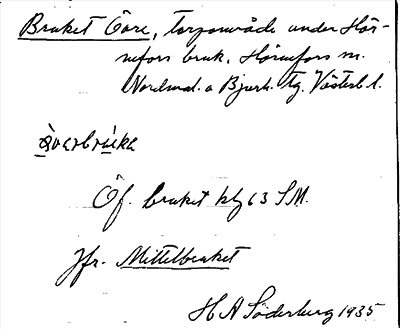 Bruket Övre, torpområde under Hör-
nefors bruk. Hörnefors sn.
Nordmal. o Bjurh. tg. Västerb. l.
Öf. bruket kbl 63 SM.
Jfr. Mittelbruket
H A Söderberg 1935